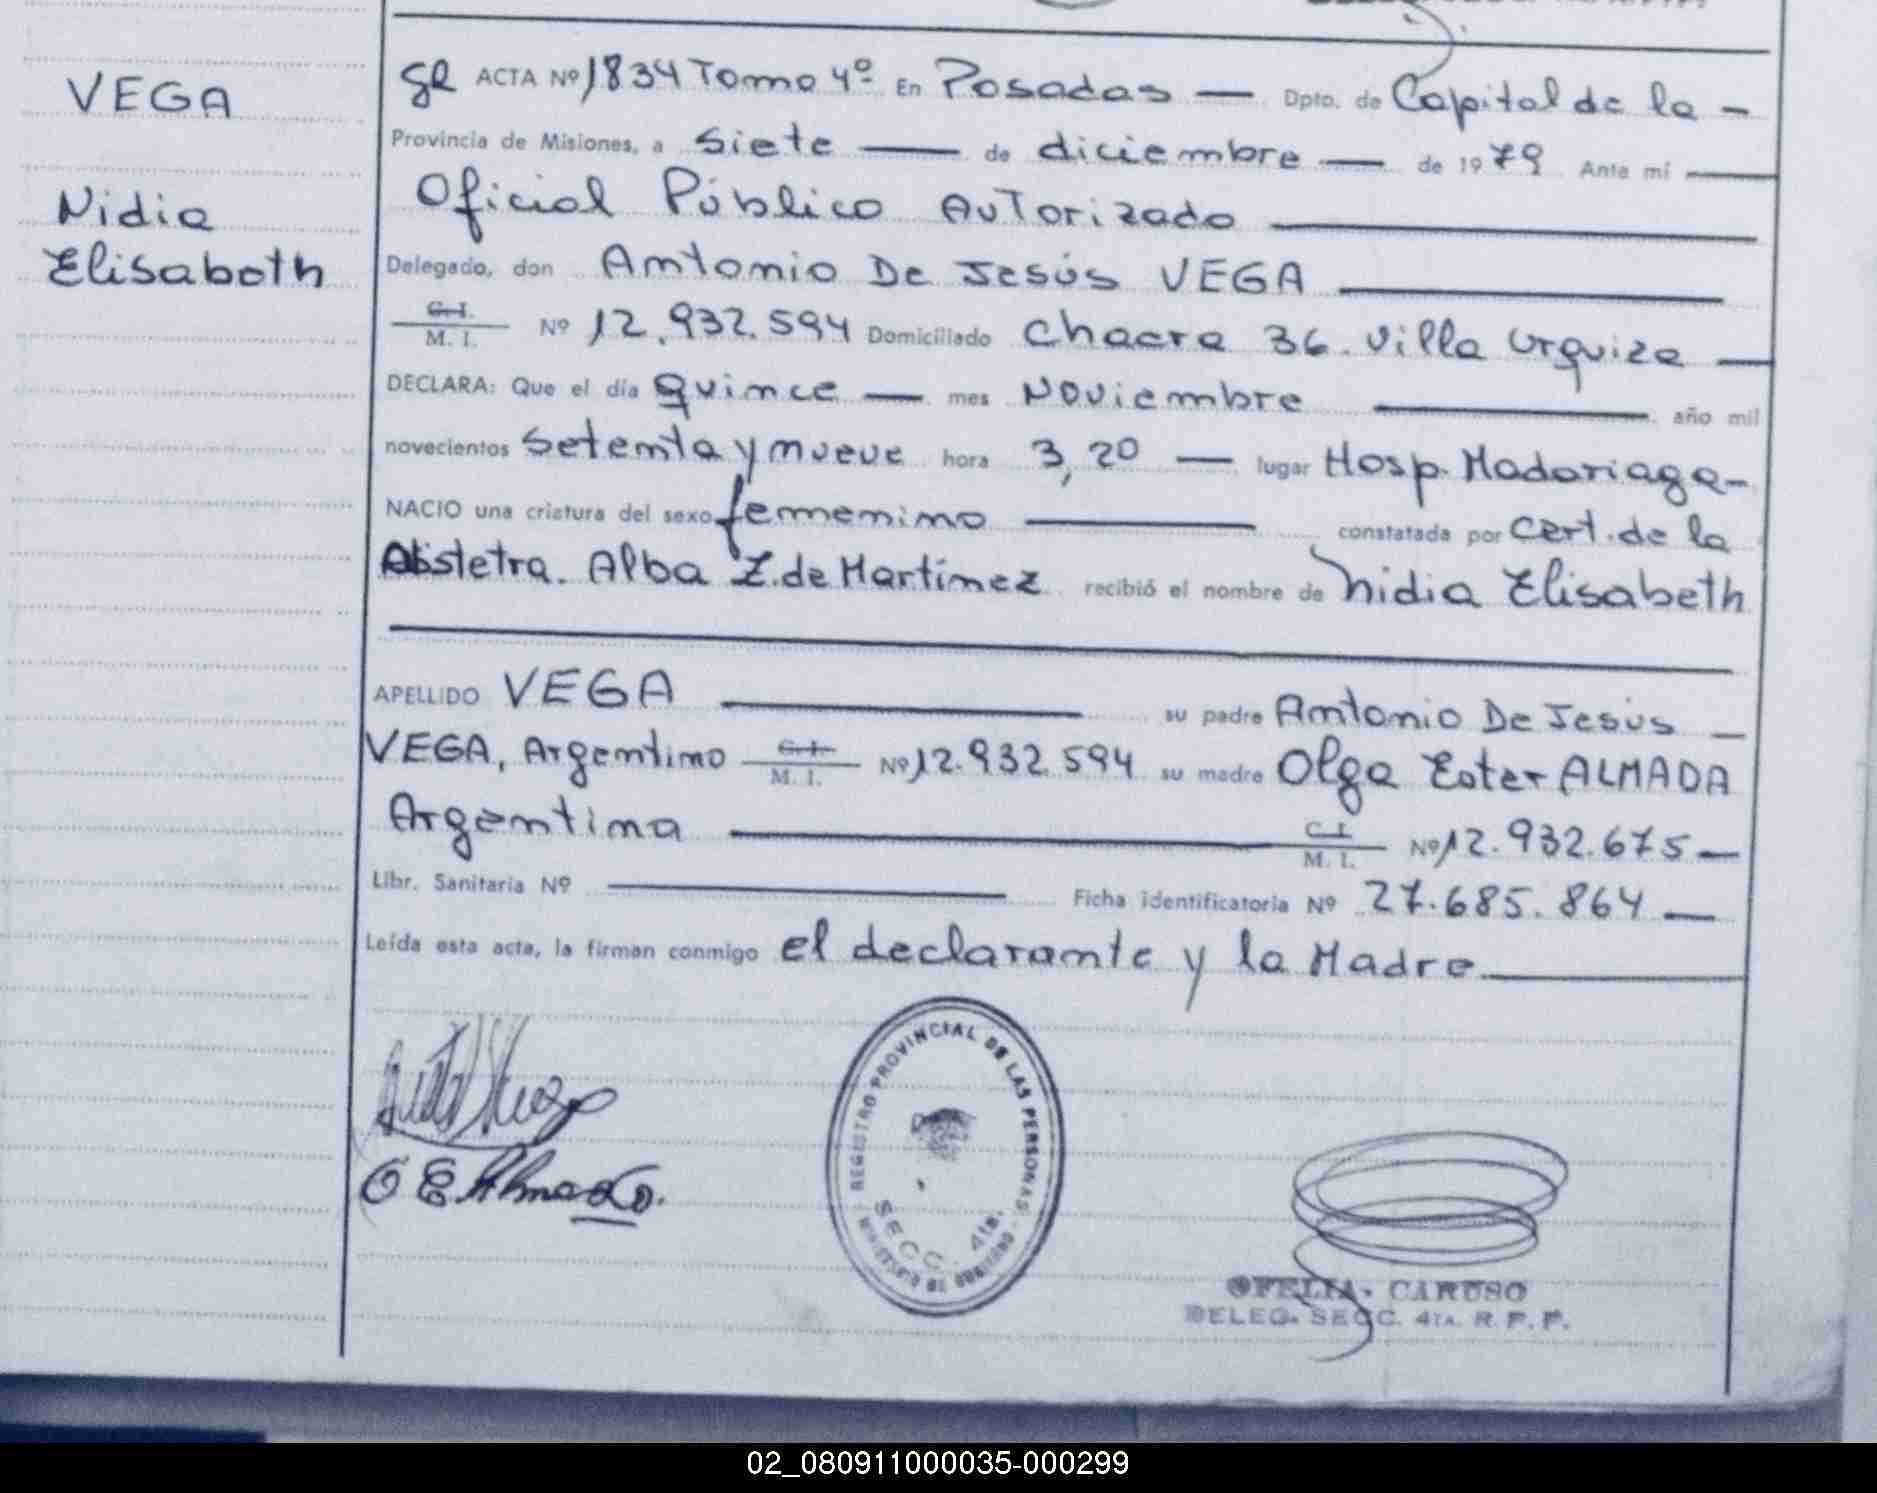 VEGA
Nidia
Elisaboth
ACTA Nº 1834 Tomo 4º En Posadas — Dpto. de Capital de la -
Provincia de Misiones, a siete — de diciembre — de 1979 Ante mí —
Oficial Público Autorizado
Delegado, don Antonio De Jesús VEGA
C. I. / M. I. Nº 12.932.594 Domiciliado Chacra 36. Villa Urquiza —
DECLARA: Que el día quince — mes Noviembre — año mil
novecientos setenta y nueve hora 3,20 — lugar Hosp. Madariaga-
NACIO una criatura del sexo femenino — constatada por Cert. de la
Obstetra. Alba Z. de Martínez recibió el nombre de Nidia Elisabeth
APELLIDO VEGA — su padre Antonio De Jesús —
VEGA, Argentino C. I. / M. I. Nº 12.932.594 su madre Olga Ester ALMADA
Argentina — C. I. / M. I. Nº 12.932.675 —
Libr. Sanitaria Nº — Ficha identificatoria Nº 27.685.864 —
Leída esta acta, la firman conmigo el declarante y la Madre
O E Almada.
REGISTRO PROVINCIAL DE LAS PERSONAS
MINISTERIO DE GOBIERNO
SECC. 4ta.
OFELIA CARUSO
DELEG. SECC. 4TA. R. P. P.
02_080911000035-000299